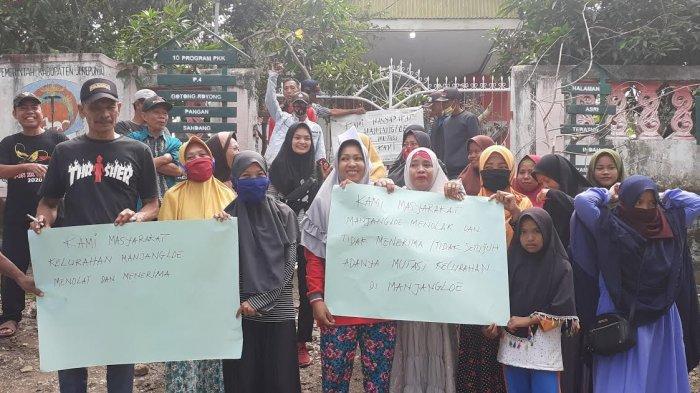 PEMERINTAH KABUPATEN JENEPONTO
10 PROGRAM PKK
P4
GOTONG ROYONG
PANGAN
SANDANG
HALAMAN
ASRI
TERATUR
INDAH
KAMI MASYARAKAT
THRASHER
2020
KAMI MASYARAKAT
KELURAHAN MANJANGLOE
MENOLAT DAN MENERIMA
KAMI MASYARAKAT
MANJANGLOE MENOLAK DAN
TIDAK MENERIMA / TIDAK SETUJUH
ADANYA MUTASI KELURAHAN
DI MANJANGLOE